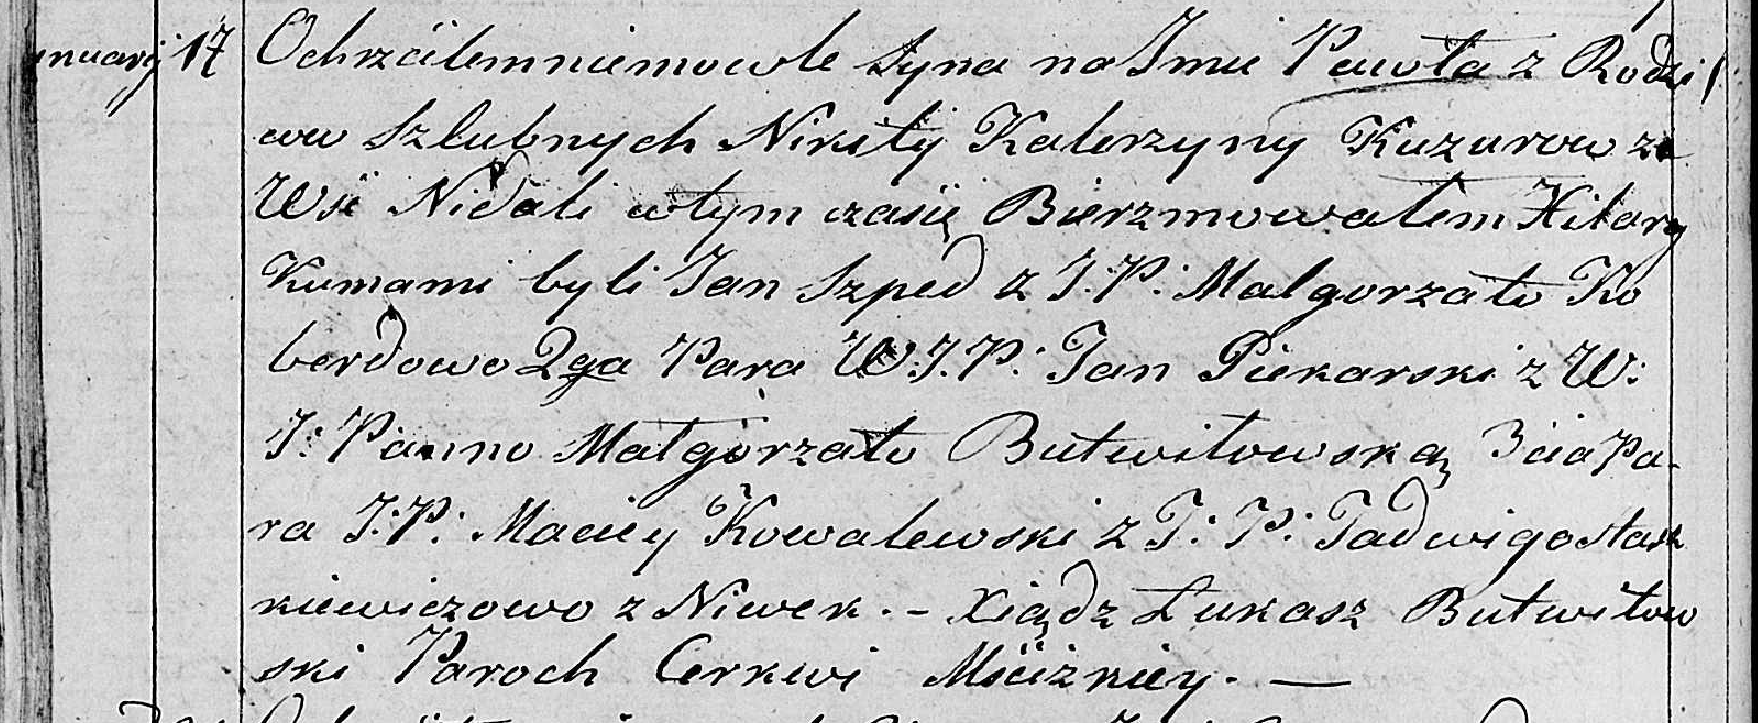 nuarij 17 Ochrzciłem niemowle Syna na Imie Pawła z Rodzi
ców Szlubnych Nikity Katerzyny Kuzurow ze
Wsi Nidali wtym czasię Bierzmowałem Hilary
Kumami byli Jan Szped z J: P: Malgorzato Ko
berdowo 2ga Para W: J. P: Jan Piekarski z W:
J: Panno Małgorzato Butwiłowską 3cia Pa-
ra J: P: Maciey Kowalewski z J: P: Jadwigo Stasz
kiewiczowo z Niwek. - Xiądz Łukasz Butwiłow
ski Paroch Cerkwi Mściżkiey. —